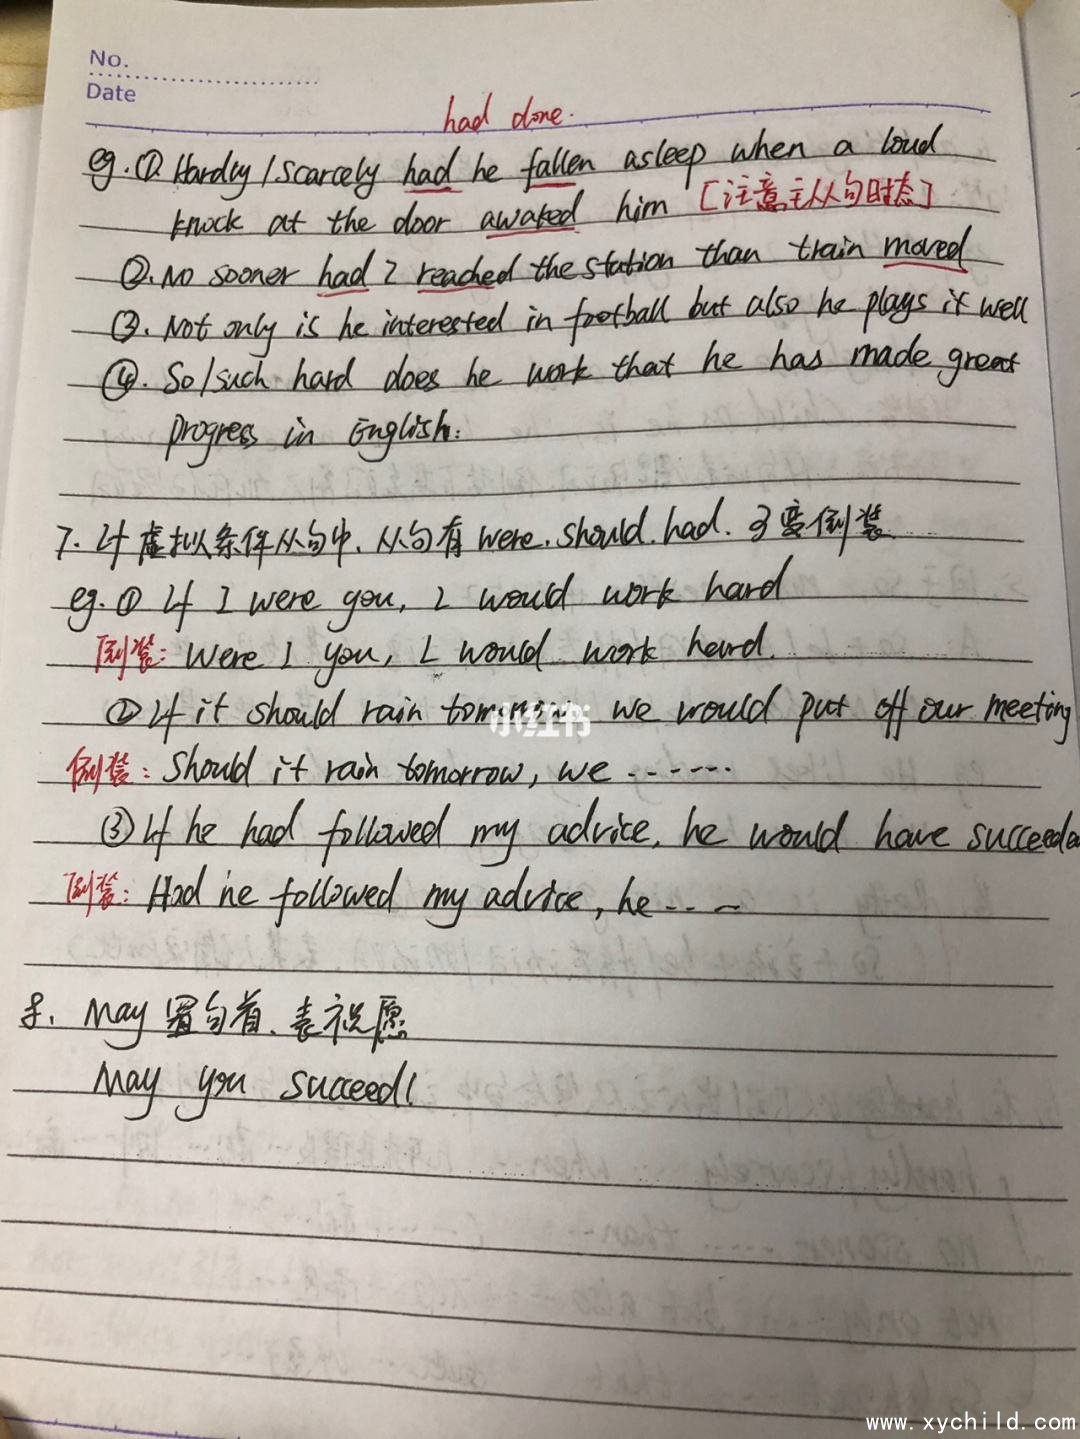 No.
Date
had done.
eg. ① Hardly/Scarcely had he fallen asleep when a loud
knock at the door awaked him [注意主从句时态]
②. No sooner had I reached the station than train moved
③. Not only is he interested in football but also he plays it well
④. So/such hard does he work that he has made great
progress in English.
7. if 虚拟条件从句中, 从句有 were. should. had. 可变倒装
eg. ① If I were you, I would work hard
倒装: Were I you, I would work hard.
② If it should rain tomorrow we would put off our meeting
小红书
倒装: Should it rain tomorrow, we ......
③ If he had followed my advice, he would have succeeded
倒装: Had he followed my advice, he ...
8. May 置句首、表祝愿
May you succeed!
www.xychild.com